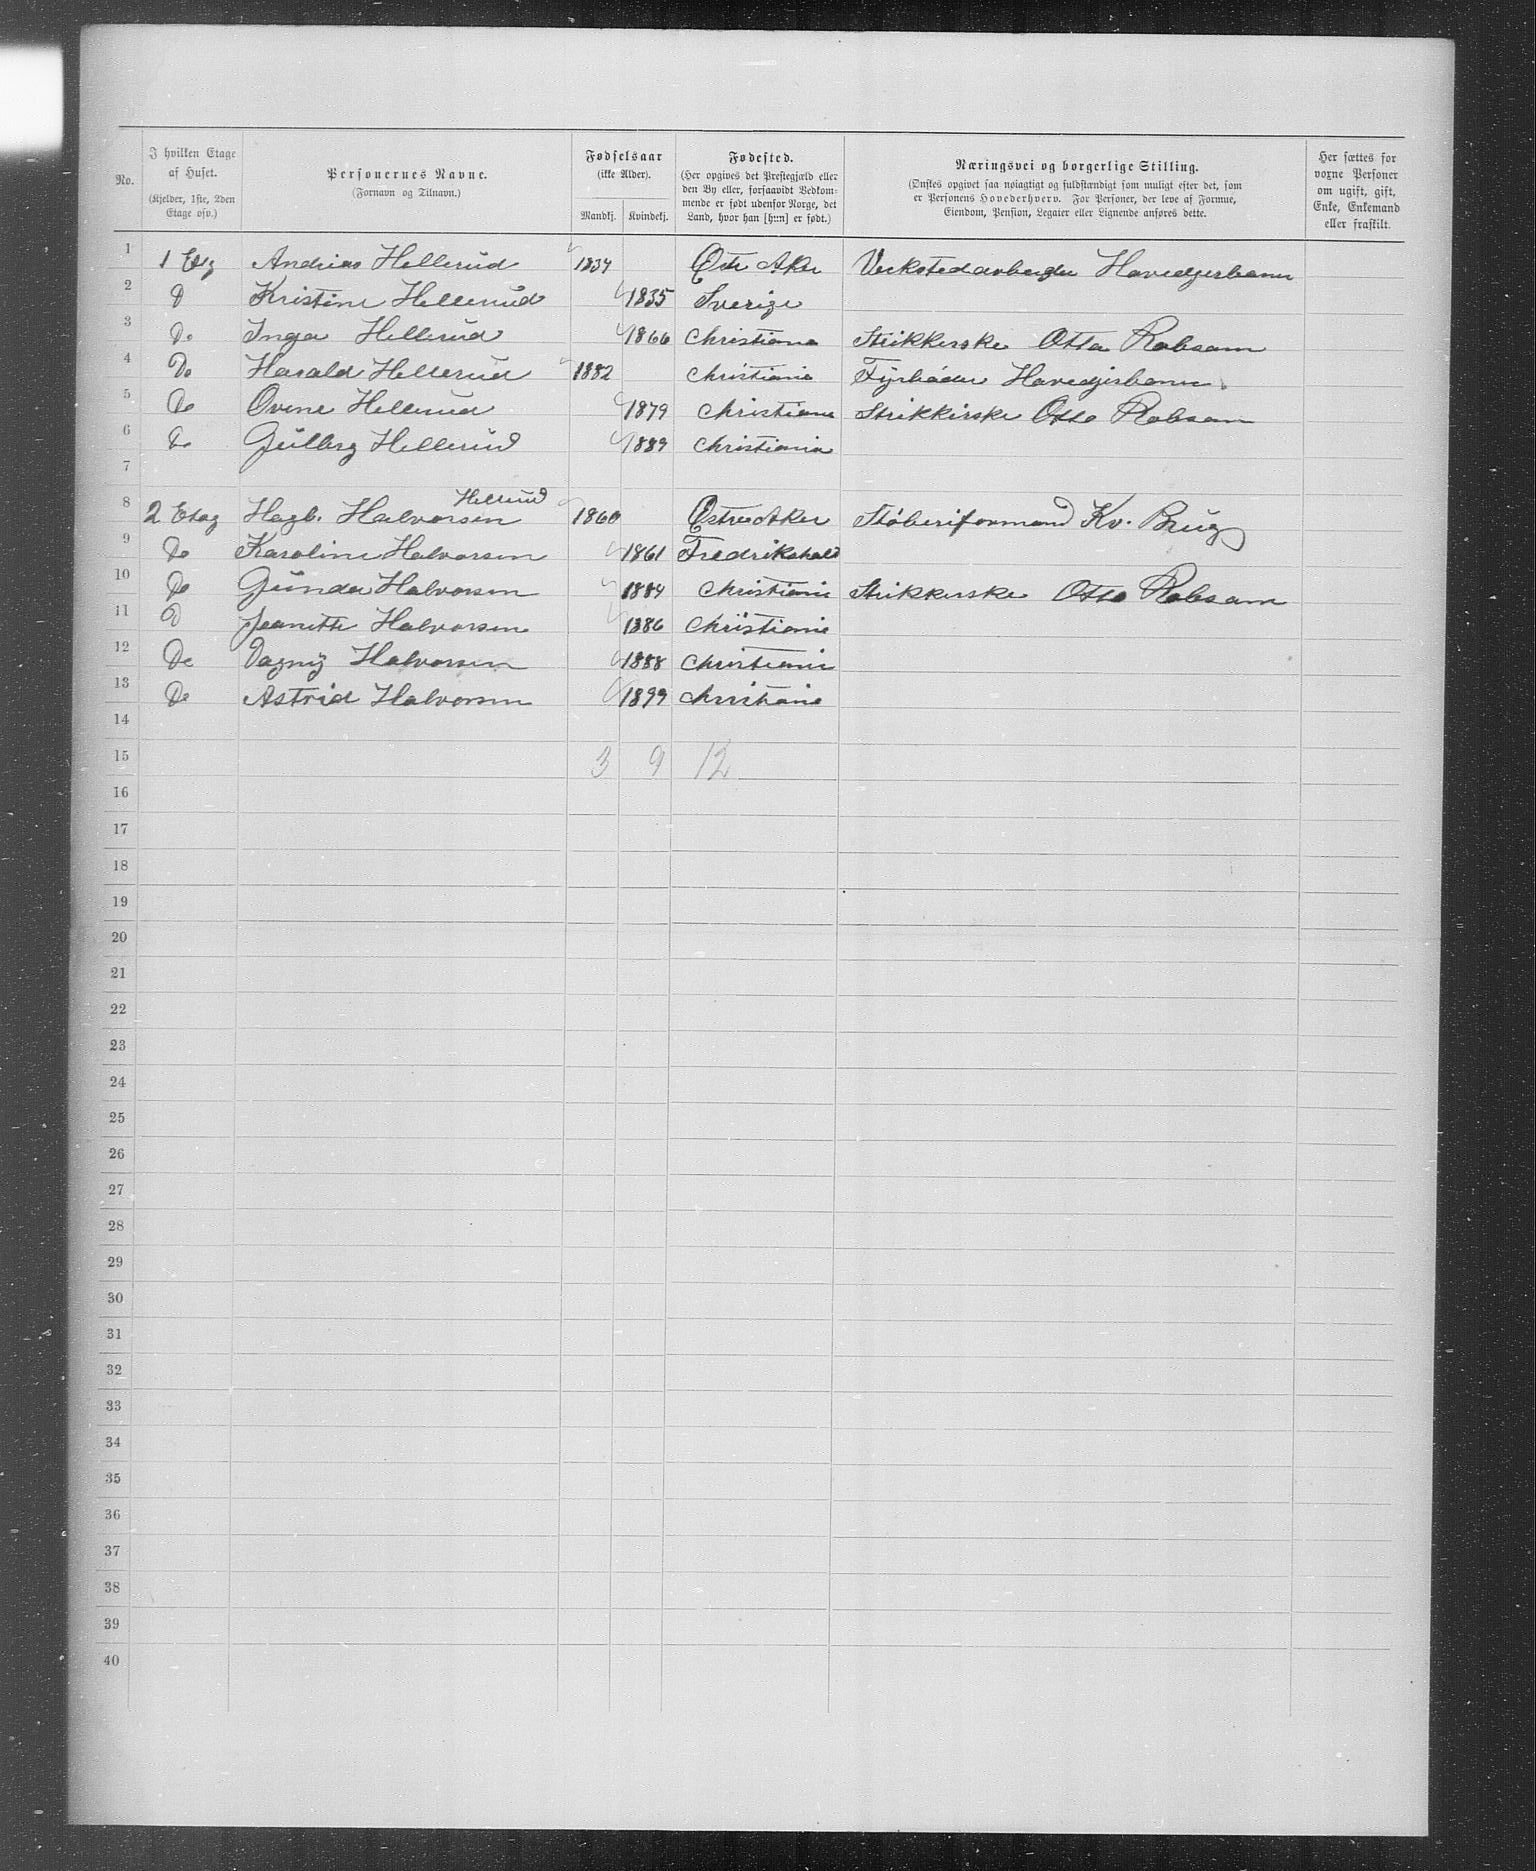 No.
I hvilken Etage af Huset.
(Kjelder, 1ste, 2den Etage osv.)
Personernes Navne.
(Fornavn og Tilnavn.)
Fødselsaar
(ikke Alder).
Mandkj. Kvindekj.
Fødested.
(Her opgives det Prestegjæld eller den By eller, forsaavidt Vedkommende er født udenfor Norge, det Land, hvor han [hun] er født.)
Næringsvei og borgerlige Stilling.
(Ønskes opgivet saa nøiagtigt og fuldstændigt som muligt efter det, som er Personens Hovederhverv. For Personer, der leve af Formue, Eiendom, Pension, Legater eller Lignende anføres dette.
Her sættes for voxne Personer om ugift, gift, Enke, Enkemand eller fraskilt.
1 1 Etg Andreas Hellerud 1834 Østr Aker Verkstedarbeyder Hovedjerbanen
2 D Kristine Hellerud 1835 Sverige
3 Do Inga Hellerud 1866 Christiana Strikkerske Otto Robsam
4 Do Harald Hellerud 1882 Christiania Fyrbøder Hovedjerbanen
5 Do Ovine Hellerud 1879 Christiana Strikkirske Otto Robsam
6 Do Gulbrg Hellerud 1889 Christiania
7
Hellerud
8 2 Etag Hagb. Halvorsen 1860 Østre Aker Støberiformand Kv. Brug
9 Do Karoline Halvorsen 1861 Fredrikshald
10 Do Gunda Halvorsen 1884 Christiania Strikkerske Otto Robsam
11 D Jeanette Halvorsen 1886 Christiania
12 Do Dagny Halvorsen 1888 Christiania
13 Do Astrid Halvorsen 1899 Christiania
14
15 3 9 12
16
17
18
19
20
21
22
23
24
25
26
27
28
29
30
31
32
33
34
35
36
37
38
39
40